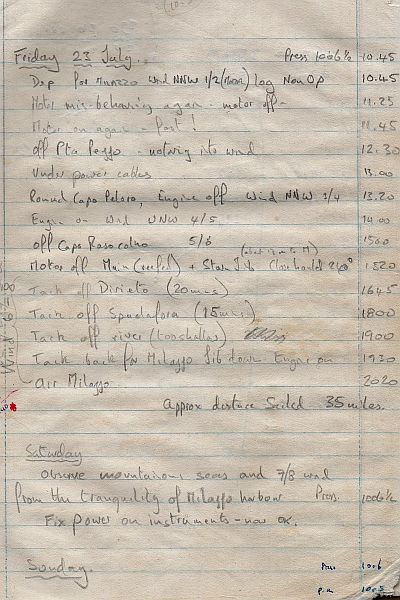 Friday 23 July. Press 1006½ 10.45
Dep for Milazzo Wind NNW 1/2 (Motor) log Non Op 10.45
Motor mis-behaving again - motor off - 11.25
Motor on again - fast! 11.45
off Pta Pezzo - motoring into wind 12.30
Under power cables 13.00
Round Capo Peloro, Engine off Wind NNW 3/4 13.20
Engine on Wind WNW 4/5 14.00
off Capo Rasocolmo 5/6 1500
Motor off Main (reefed) + Stay Jib Close hauled 240° 1520
Tack off Divieto (20mins) 1645
Tack off Spadafora (15mins) 1800
Tack off river (too shallow) 1900
Tack back for Milazzo Jib down Engine on 1930
Arr Milazzo 2020
Wind 6→8
Approx distance Sailed 35 miles.
Saturday
Observe mountainous seas and 7/8 wind
from the tranquility of Milazzo harbour Press. 1006½
Fix power on instruments - now OK.
Sunday. Press 1006
p.m 1005